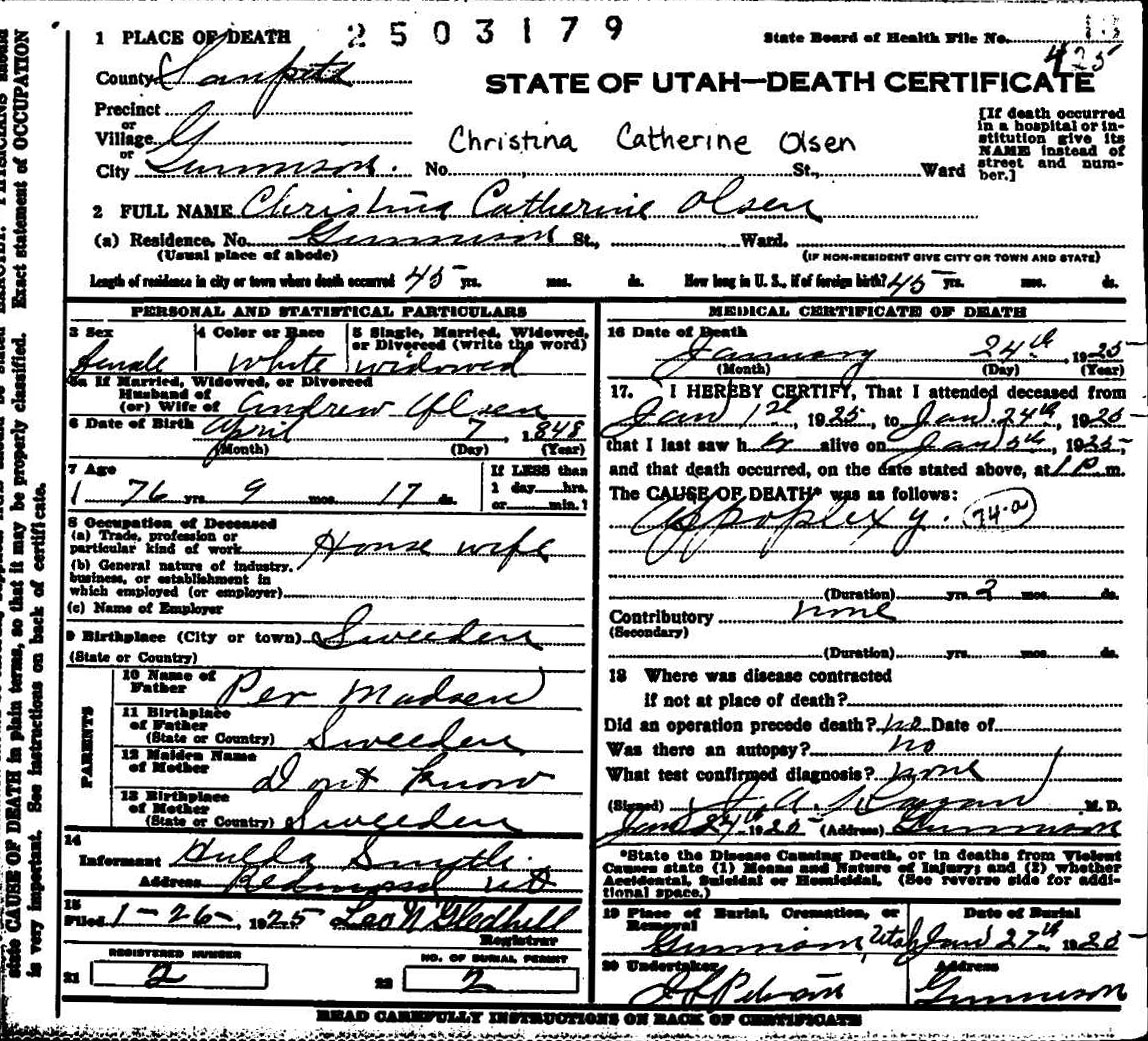 1 PLACE OF DEATH 2503179 State Board of Health File No.
425
County Sanpete STATE OF UTAH—DEATH CERTIFICATE
Precinct
or
Village G
or
City Gunnison. No. St., Ward
Christina Catherine Olsen
[If death occurred
in a hospital or in-
stitution give its
NAME instead of
street and num-
ber.]
2 FULL NAME Christina Catherine Olsen
(a) Residence, No. Gunnison St., Ward.
(Usual place of abode) (IF NON-RESIDENT GIVE CITY OR TOWN AND STATE)
Length of residence in city or town where death occurred 45 yrs. mos. ds. How long in U. S., if of foreign birth? 45 yrs. mos. ds.
PERSONAL AND STATISTICAL PARTICULARS
3 Sex 4 Color or Race 5 Single, Married, Widowed,
or Divorced (write the word)
Female White widowed
5a If Married, Widowed, or Divorced
Husband of
(or) Wife of Andrew Olsen
6 Date of Birth April 7, 1848
(Month) (Day) (Year)
7 Age If LESS than
1 76 yrs. 9 mos. 17 ds. 1 day hrs.
or min.?
8 Occupation of Deceased
(a) Trade, profession or
particular kind of work House wife
(b) General nature of industry,
business, or establishment in
which employed (or employer)
(c) Name of Employer
9 Birthplace (City or town) Sweeden
(State or Country)
PARENTS
10 Name of
Father Per Madsen
11 Birthplace
of Father
(State or Country) Sweeden
12 Maiden Name
of Mother Dont know
13 Birthplace
of Mother
(State or Country) Sweeden
14
Informant Hulda Smyth
Address Redmond Ut
15
Filed 1-26-, 1925 Leo N Gledhill
Registrar
REGISTERED NUMBER NO. OF BURIAL PERMIT
21 2 22 2
MEDICAL CERTIFICATE OF DEATH
16 Date of Death
January 24th, 1925
(Month) (Day) (Year)
17. I HEREBY CERTIFY, That I attended deceased from
Jan 1st, 1925, to Jan. 24th, 1925
that I last saw her alive on Jan 5th, 1925,
and that death occurred, on the date stated above, at 1 P.m.
The CAUSE OF DEATH* was as follows:
Appoplexy. 74-a
(Duration) yrs. 2 mos. ds.
Contributory none
(Secondary)
(Duration) yrs. mos. ds.
18 Where was disease contracted
if not at place of death?
Did an operation precede death? no Date of
Was there an autopsy? no
What test confirmed diagnosis? none
(Signed) M. D.
Jan 24, 1925 (Address) Gunnison
*State the Disease Causing Death, or in deaths from Violent
Causes state (1) Means and Nature of Injury; and (2) whether
Accidental, Suicidal or Homicidal. (See reverse side for addi-
tional space.)
19 Place of Burial, Cremation, or Date of Burial
Removal
Gunnison, Utah Jan 27th 1925
20 Undertaker Address
Gunnison
READ CAREFULLY INSTRUCTIONS ON BACK OF CERTIFICATE
Exact statement of OCCUPATION
state CAUSE OF DEATH in plain terms, so that it may be properly classified.
is very important. See instructions on back of certificate.